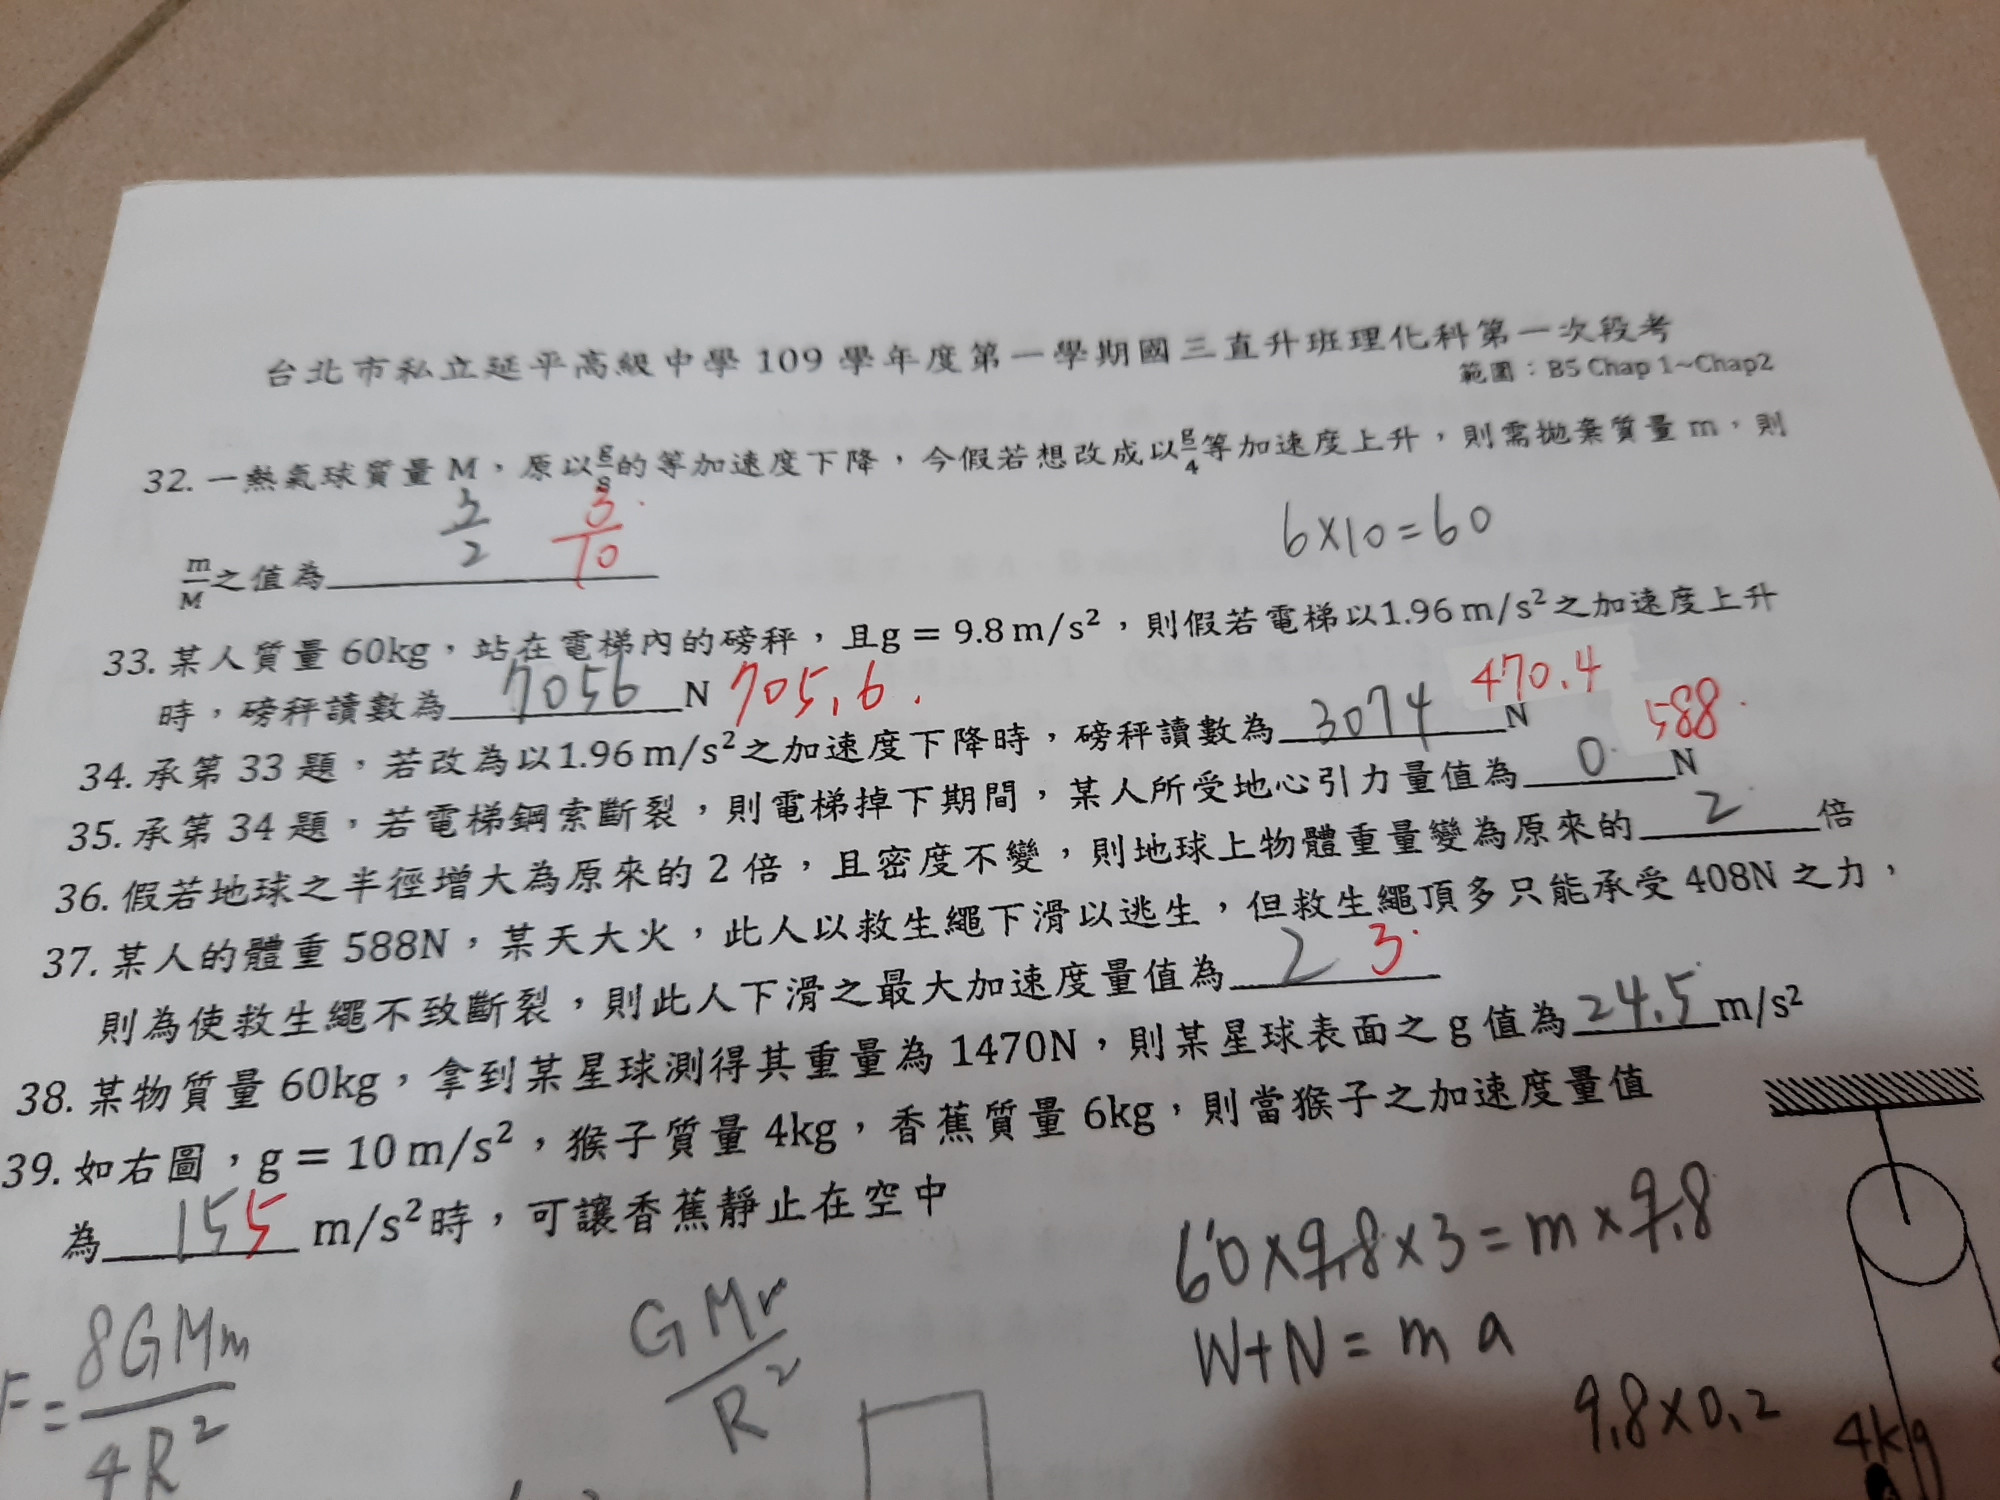 台北市私立延平高級中學 109 學年度第一學期國三直升班理化科第一次段考
範圍：B5 Chap 1~Chap2
32. 一熱氣球質量 M，原以g/8的等加速度下降，今假若想改成以g/4等加速度上升，則需拋棄質量 m，則
3/2 3/10
6×10=60
m/M之值為
33. 某人質量 60kg，站在電梯內的磅秤，且g = 9.8 m/s²，則假若電梯以1.96 m/s²之加速度上升
時，磅秤讀數為 7056 N 705.6
34. 承第 33 題，若改為以1.96 m/s²之加速度下降時，磅秤讀數為 3074 N 470.4
35. 承第 34 題，若電梯鋼索斷裂，則電梯掉下期間，某人所受地心引力量值為 0 N 588
36. 假若地球之半徑增大為原來的 2 倍，且密度不變，則地球上物體重量變為原來的 2 倍
37. 某人的體重 588N，某天大火，此人以救生繩下滑以逃生，但救生繩頂多只能承受 408N 之力，
則為使救生繩不致斷裂，則此人下滑之最大加速度量值為 2 3
38. 某物質量 60kg，拿到某星球測得其重量為 1470N，則某星球表面之 g 值為 24.5 m/s²
39. 如右圖，g = 10 m/s²，猴子質量 4kg，香蕉質量 6kg，則當猴子之加速度量值
為 15 5 m/s²時，可讓香蕉靜止在空中
60×9.8×3=m×9.8
F=8GMm/4R²
GMr/R²
W+N=ma
9.8×0.2
4kg